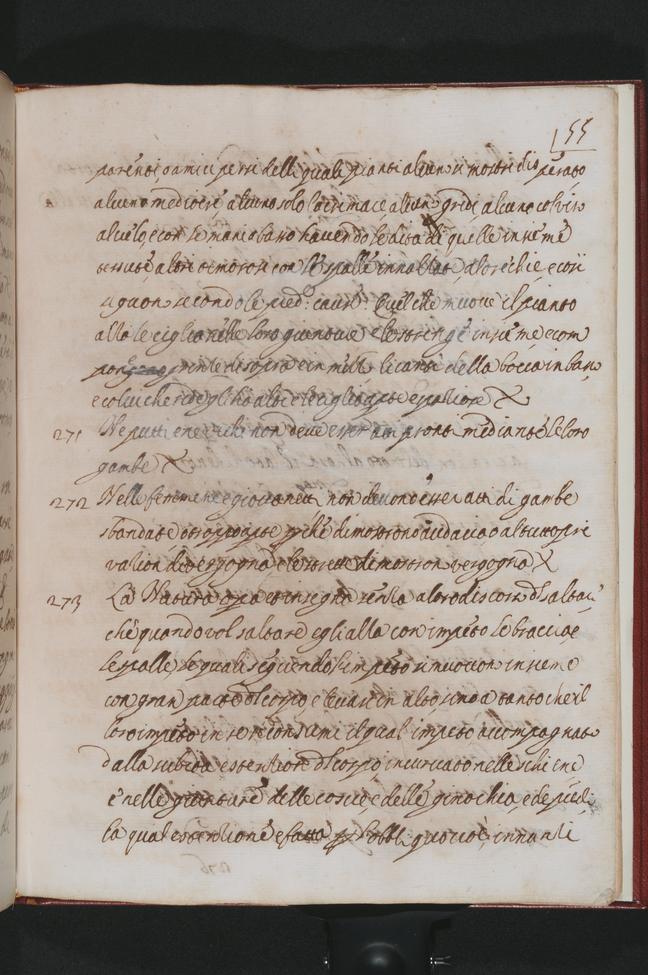 55
parenti o amici persi delli quali pianti alcun si mostri disperato
alcuno mediocre, alcuno solo lacrimace, alcun grida, alcuno col viso
al cielo, e con le mani a basso havendo le dita di quelle insieme
tessute, altri timorosi con le spalle innalzate, a l'orechie, e così
seguon secondo le pred: cause. Quel che muove il pianto
alza le ciglia nelle loro giunture e le stringe insieme e com
pone grinze di sopra e in mezzo li canti della bocca in basso
e colui che ride gli ha alti e le ciglia aperte e spatiose &
271 Ne putti e ne vechi non deve esser atti pronti mediante le loro
gambe &
272 Nelle femmine e giovanetti non devono esser atti di gambe
sbandate o troppo aperte perché dimostrono audacia o al tutto pri
vation di vergogna e le strette dimostron vergogna &
273 La Natura opera et insegna senza alcun discorso del saltat:
che quando vol saltare egli alza con impeto le braccia e
le spalle le quali seguendo l'impeto si muovon insieme
con gran parte del corpo, e levasi in alto sino a tanto che il
loro impeto in se si consumi il qual impeto è accompagnato
dalla subita estentione del corpo incurvato nelle schiene
e nelle gionture delle coscie e delle ginochia, e de piedi
la qual estentione e fatta per obbliquo cioè, innanti